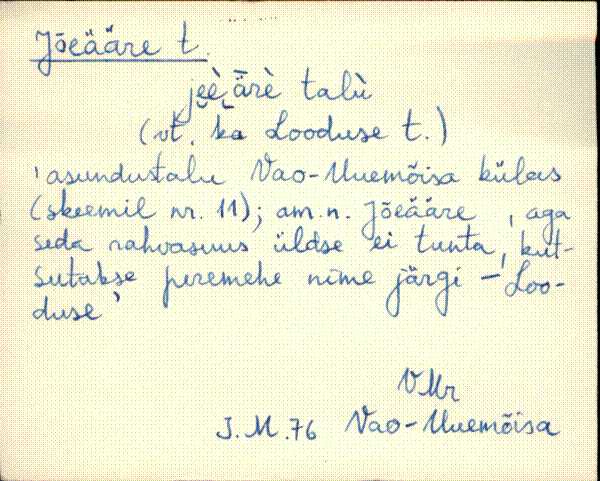 Jõeääre t.
jeè̮ärè talù
(vt. ka Looduse t.)
'asundustalu Vao-Uuemõisa külas
(skeemil nr. 11); am.n. Jõeääre, aga
seda rahvasuus üldse ei tunta, kut-
sutakse peremehe nime järgi – Loo-
duse'
VMr
J.M.76 Vao-Uuemõisa